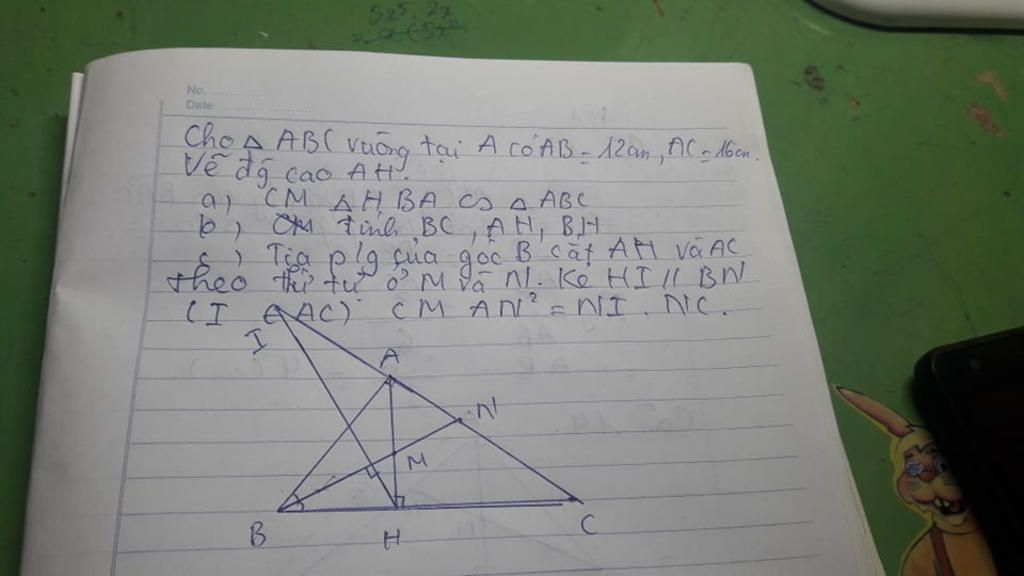 5x⁵. 2x
No.
Date
Cho △ ABC vuông tại A có AB = 12cm, AC = 16cm.
Vẽ đg cao AH.
a) CM △ HBA ∽ △ ABC
b) tính BC, AH, BH
c) Tia p/g của góc B cắt AH và AC
theo thứ tự ở M và N. Kẻ HI // BN
(I ∈ AC) CM AN² = NI . NC.
I
A
N
M
B
H
C